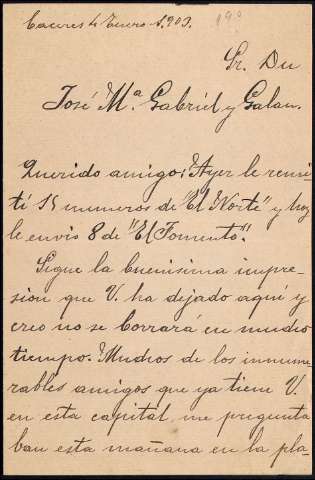 Caceres 4 Enero 1.903.
190
Sr. Dn
José Mª Gabriel y Galan.
Querido amigo: Ayer le remi-
tí 15 numeros de "El Norte" y hoy
le envio 8 de "El Fomento".
Sigue la buenisima impre-
sion que V. ha dejado aquí y
creo no se borrará en mucho
tiempo. Muchos de los innume-
rables amigos que ya tiene V.
en esta capital, me pregunta
ban esta mañana en la pla-